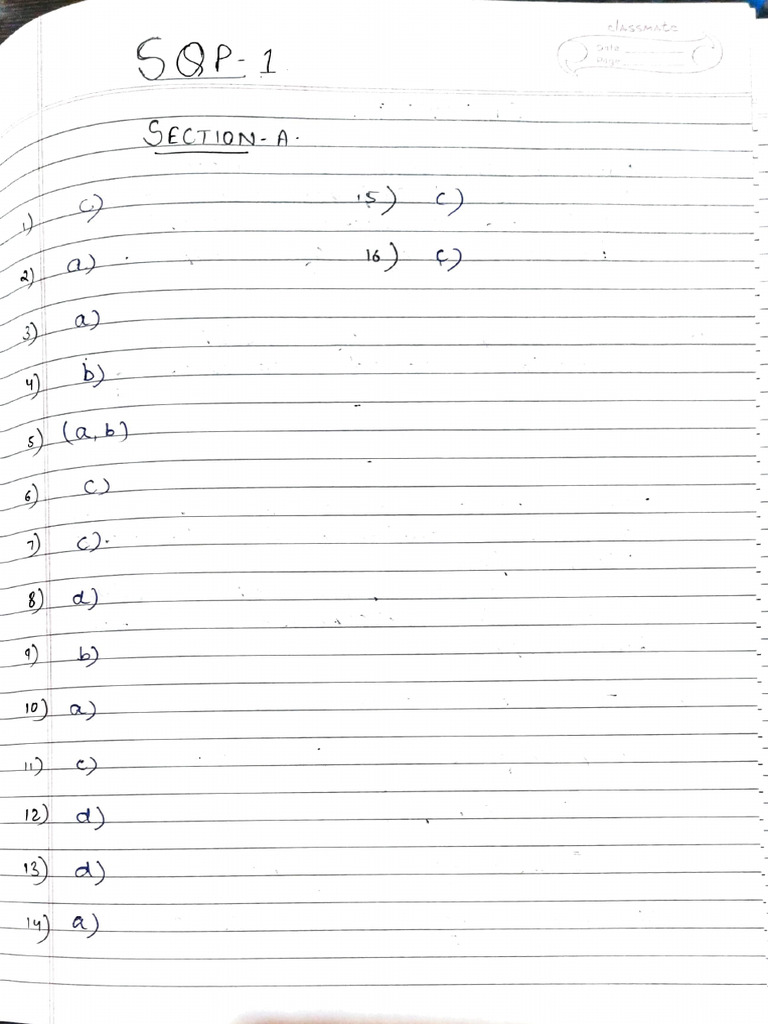 classmate
Date
Page
SQP-1
SECTION-A.
1) c)
2) a)
3) a)
4) b)
5) (a, b)
6) c)
7) c).
8) d)
9) b)
10) a)
11) c)
12) d)
13) d)
14) a)
15) c)
16) c)